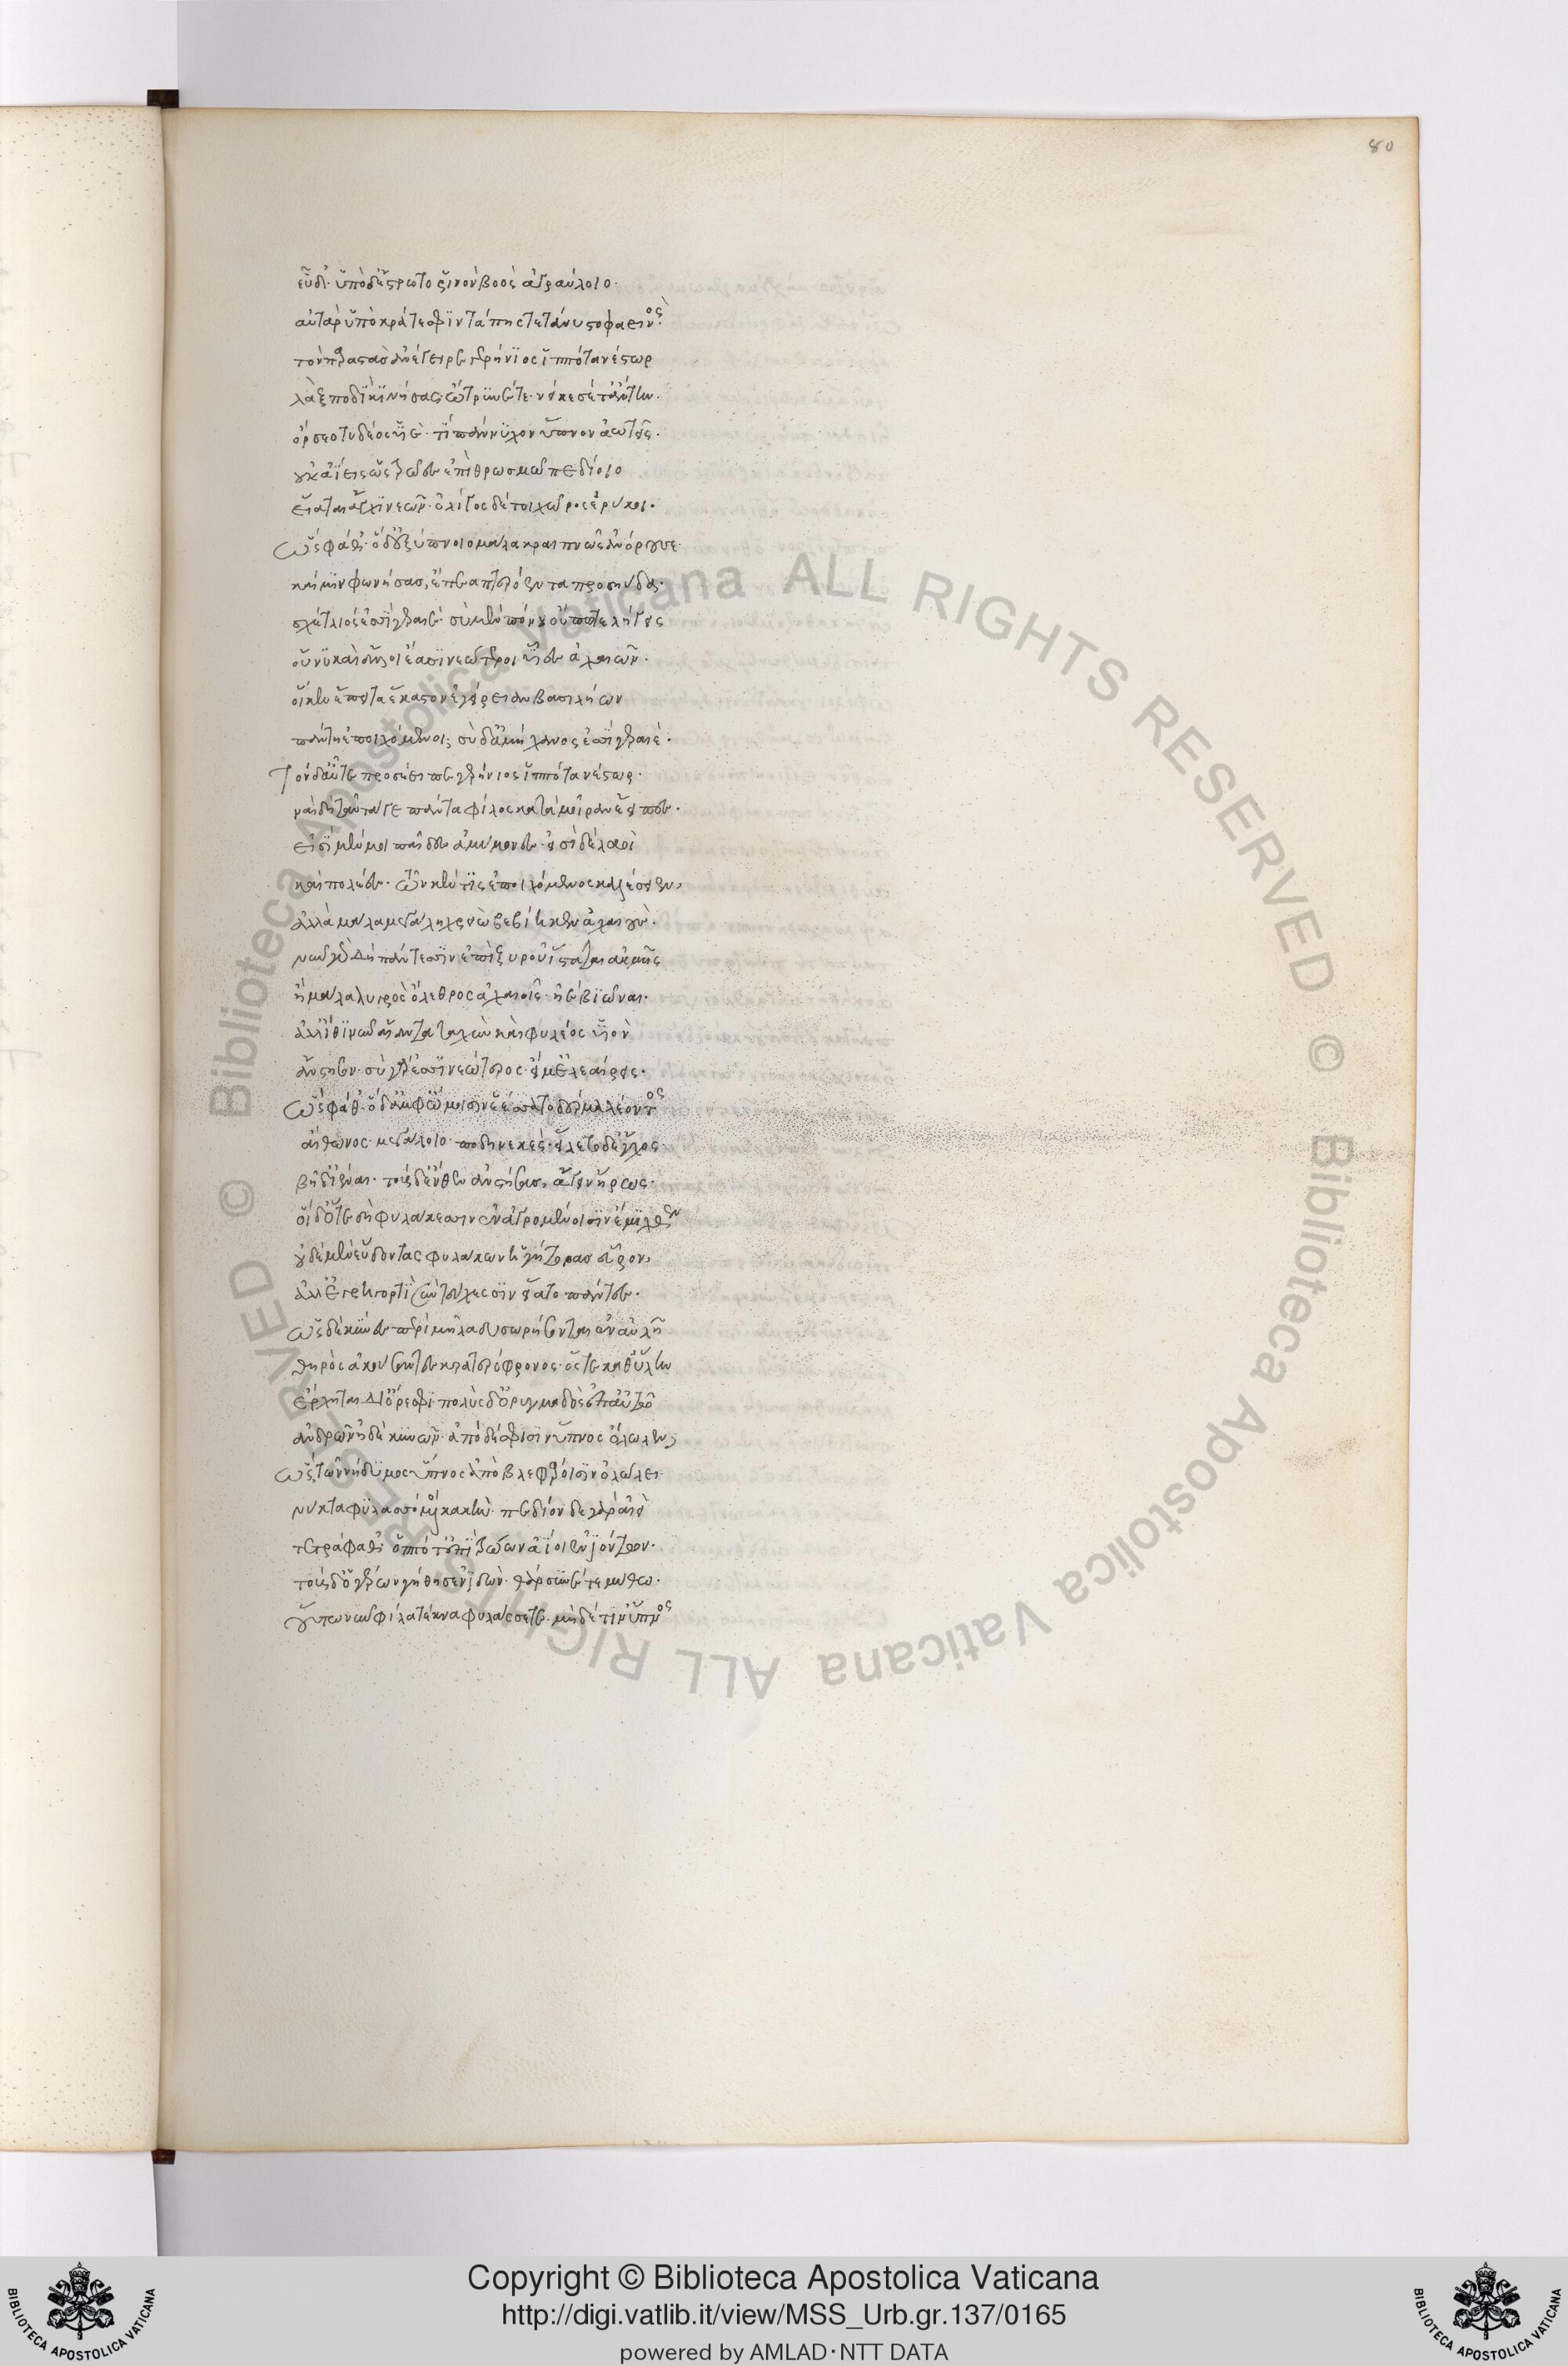 εὗδ'· ὑπὸ δ' ἔστρωτο ῥινὸν βοὸς ἀγραύλοιο·
αὐτὰρ ὑπὸ κράτεσφιν τάπης τετάνυστο φαεινός·
τὸν παρστὰς ἀνέγειρε γερήνιος ἱππότα νέστωρ
λὰξ ποδὶ κινήσας· ὤτρυνέ τε· νείκεσέ τ' ἄντην·
ὄρσεο τυδέος υἱέ· τί πάννυχον ὕπνον ἀωτεῖς·
οὐκ ἀΐεις ὡς τρῶες ἐπὶ θρωσμῶ πεδίοιο
εἵαται ἄγχι νεῶν· ὀλίγος δέ τοι χῶρος ἐρύκει·
ὣς φάθ'· ὁ δ' ἐξ ὕπνοιο μάλα κραιπνῶς ἀνόρουσε·
καί μιν φωνήσας, ἔπεα πτερόεντα προσηύδα·
σχέτλιός ἐσσι γεραιέ· σὺ μὲν πόνου οὔποτε λήγεις
οὔ νυ καὶ ἄλλοι ἔασιν νεώτεροι υἷες ἀχαιῶν·
οἵ κεν ἔπειτα ἕκαστον ἐγείρειαν βασιλήων
πάντη ἐποιχόμενοι; σὺ δ' ἀμήχανος ἐσσὶ γεραιέ·
Τὸν δ' αὖτε προσέειπε γερήνιος ἱππότα νέστωρ·
ναὶ δὴ ταῦτά γε πάντα φίλος κατὰ μοῖραν ἔειπες·
εἰσὶ μέν μοι παῖδες ἀμύμονες· εἰσὶ δὲ λαοὶ
καὶ πολέες· τῶν κέν τις ἐποιχόμενος καλέσειεν,
ἀλλὰ μάλα μεγάλη χρειὼ βεβίηκεν ἀχαιούς·
νῦν γὰρ δὴ πάντεσσιν ἐπὶ ξυροῦ ἵσταται ἀκμῆς
ἢ μάλα λυγρὸς ὄλεθρος ἀχαιοῖς· ἠὲ βιῶναι·
ἀλλ' ἴθι νῦν αἴαντα ταχὺν καὶ φυλέος υἱὸν
ἄνστησον· σὺ γάρ ἐσσι νεώτερος· εἴ μ' ἐλεαίρεις·
ὣς φάθ'· ὁ δ' ἀμφ' ὤμοισιν ἑέσσατο δέρμα λέοντος
αἴθωνος· μεγάλοιο· ποδηνεκές· εἵλετο δ' ἔγχος·
βῆ δ' ἰέναι· τοὺς δ' ἔνθεν ἀναστήσας, ἄγεν ἥρως·
οἱ δ' ὅτε δὴ φυλάκεσσιν ἐν ἀγρομένοισιν ἔμιχθεν
οὐδὲ μὲν εὕδοντας φυλάκων ἡγήτορας εὗρον,
ἀλλ' ἐγρηγορτὶ σὺν τεύχεσιν εἵατο πάντες·
ὡς δὲ κύνες περὶ μῆλα δυσωρήσονται ἐν αὐλῆ
θηρὸς ἀκούσαντες κρατερόφρονος· ὅς τε καθ' ὕλην
ἔρχηται δι' ὄρεσφι· πολὺς δ' ὀρυμαγδὸς ἐπ' αὐτῶ
ἀνδρῶν ἠδὲ κυνῶν· ἀπὸ δέ σφισιν ὕπνος ὄλωλεν,
ὣς τῶν νήδυμος ὕπνος ἀπὸ βλεφάροιϊν ὀλώλει
νύκτα φυλασσομένοισι κακήν· πεδίονδε γὰρ αἰεὶ
τετράφαθ'· ὁππότ' ἐπὶ τρώων ἀΐοιεν ἰόντων·
τοὺς δ' ὁ γέρων γήθησεν ἰδών· θάρσυνέ τε μύθω·
οὕτω νῦν φίλα τέκνα φυλάσσετε· μηδέ τιν' ὕπνος
80
Copyright © Biblioteca Apostolica Vaticana
http://digi.vatlib.it/view/MSS_Urb.gr.137/0165
powered by AMLAD·NTT DATA